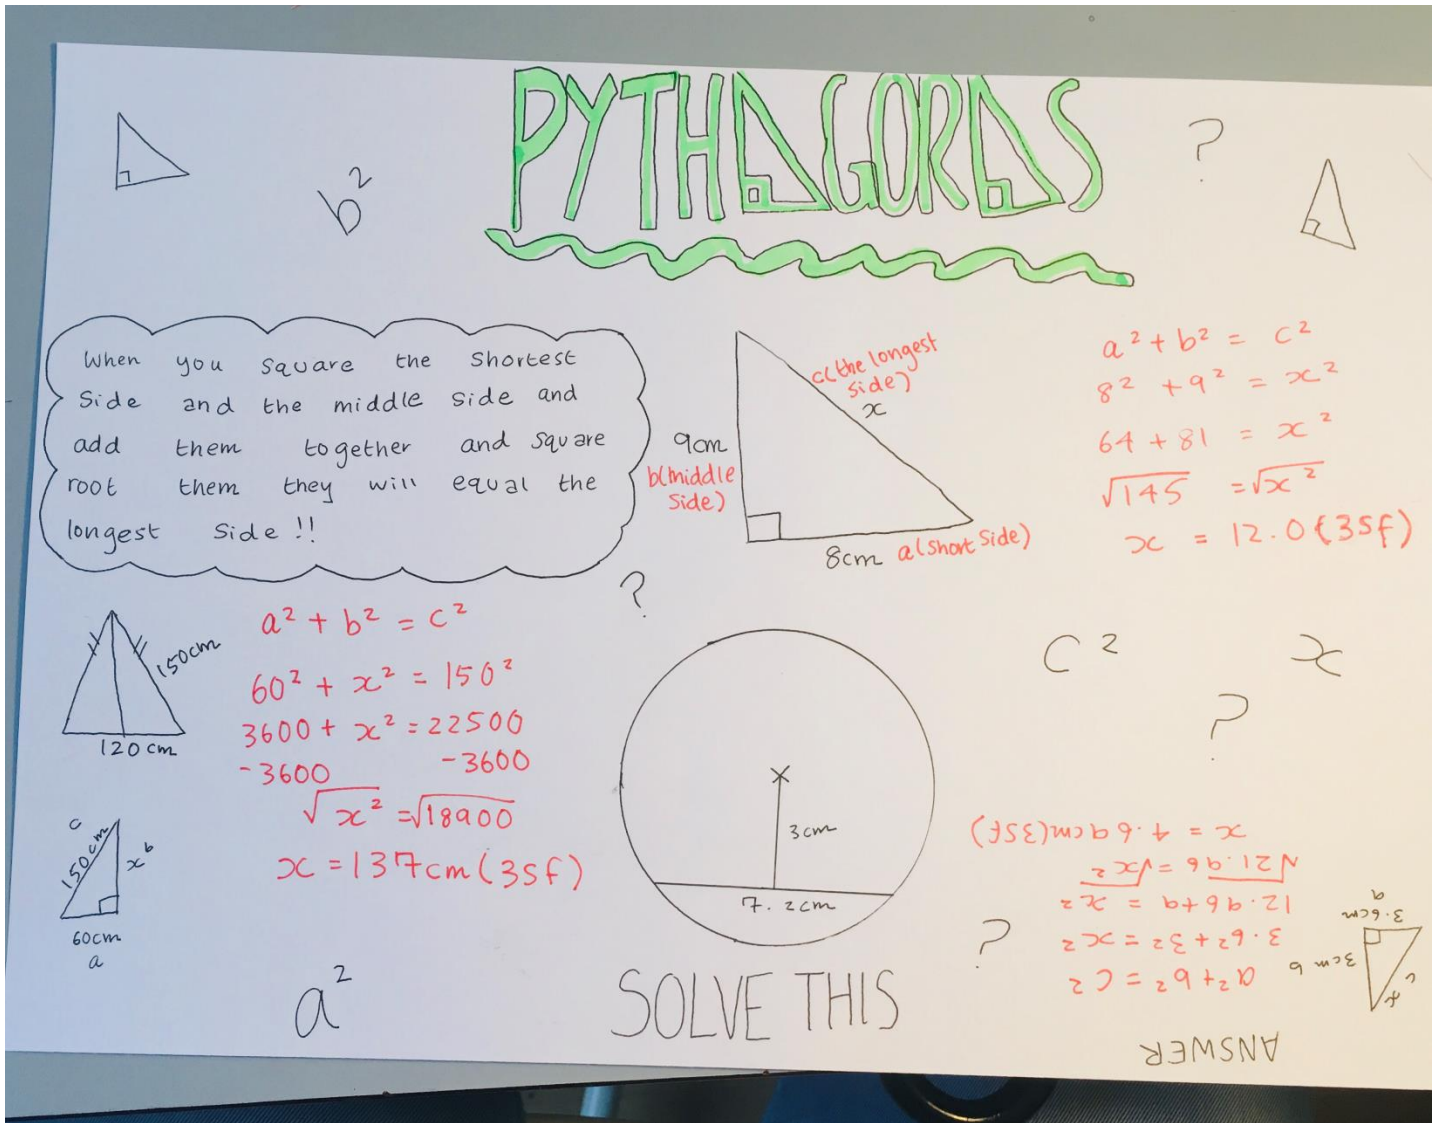 PYTHAGORAS
?
b²
When you square the shortest
side and the middle side and
add them together and square
root them they will equal the
longest side!!
c(the longest
side)
x
9cm
b(middle
side)
8cm a(short side)
a² + b² = c²
8² + 9² = x²
64 + 81 = x²
√145 = √x²
x = 12.0 (3sf)
?
150cm
120cm
a² + b² = c²
60² + x² = 150²
3600 + x² = 22500
-3600 -3600
√x² = √18900
x = 137cm (3sf)
c
150cm
x b
60cm
a
a²
3cm
7.2cm
SOLVE THIS
c² x
?
?
ANSWER
a² + b² = c²
3.6² + 3² = x²
12.96 + 9 = x²
√21.96 = √x²
x = 4.69cm (3sf)
x
c
3cm b
3.6cm
a